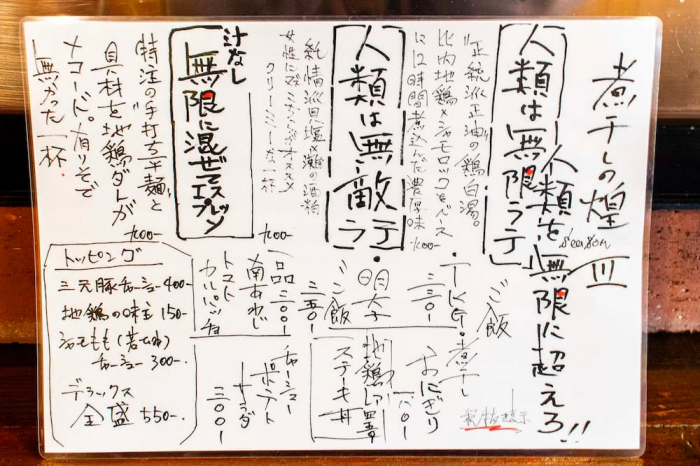 煮干しの煌 III
season
人類を無限に超えろ!!
人類は無限ラテ
"正統派正油の鶏白湯。
比内地鶏×シャモロックをベース
に12時間煮込んだ濃厚味
人類は無敵ラテ
純情派貝塩×灘の酒粕
クリーミーな一杯
汁なし
無限に混ぜてエスプレッソ
特注の手打ち平麺と
具材を地鶏ダレが
メコード。有りそで
無かった一杯。
トッピング
三元豚チャーシュー400-
地鶏の味玉 150-
チャーシュー 300-
デラックス
全盛 550-
ご飯
・TKG・煮干し
三三〇-
・明太
ご飯
三五〇-
おにぎり
一八〇-
地鶏レア
ステーキ丼
一品 三〇〇-
南あわじ
トマト
カルパッチョ
チャーシュー
ポテト
サラダ
三〇〇-